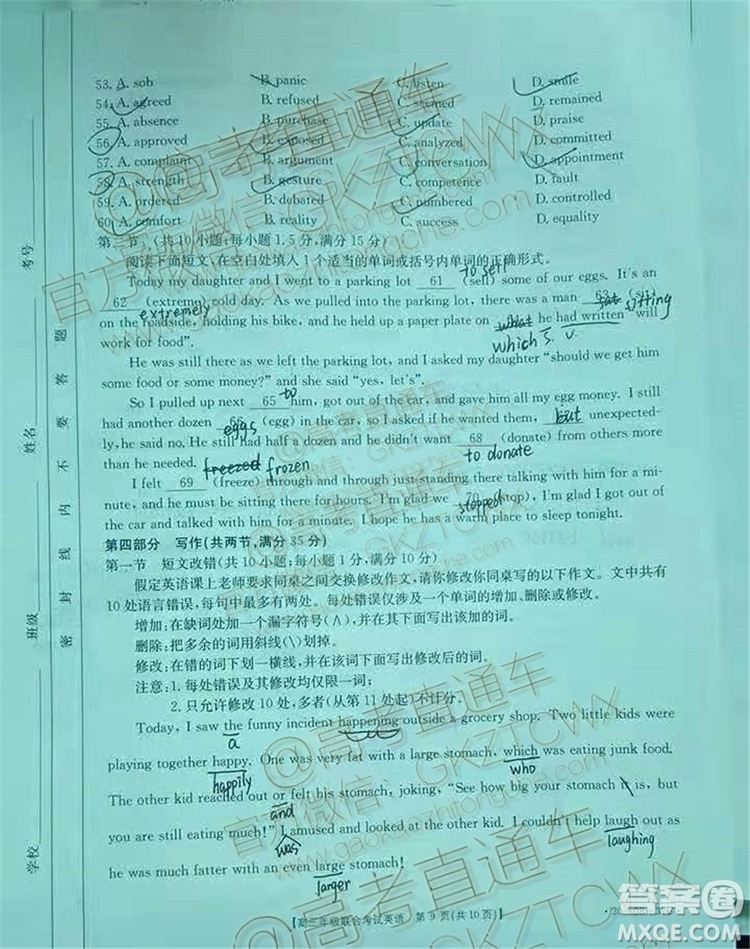 53. A. sob B. panic C. listen D. smile
54. A. agreed B. refused C. seemed D. remained
55. A. absence B. purchase C. update D. praise
56. A. approved B. exposed C. analyzed D. committed
57. A. complaint B. argument C. conversation D. appointment
58. A. strength B. gesture C. competence D. fault
59. A. ordered B. debated C. numbered D. controlled
60. A. comfort B. reality C. success D. equality
第二节 (共10小题;每小题1.5分,满分15分)
阅读下面短文,在空白处填入1个适当的单词或括号内单词的正确形式。
to sell
Today my daughter and I went to a parking lot 61 (sell) some of our eggs. It's an
62 (extreme) cold day. As we pulled into the parking lot, there was a man 63 (sit)
extremely sat sitting
on the roadside, holding his bike, and he held up a paper plate on what he had written "will
work for food". which S. v.
He was still there as we left the parking lot, and I asked my daughter "should we get him
some food or some money?" and she said "yes, let's".
So I pulled up next 65 to him, got out of the car, and gave him all my egg money. I still
had another dozen 66 (egg) in the car, so I asked if he wanted them, but unexpected-
eggs
ly, he said no. He still had half a dozen and he didn't want 68 (donate) from others more
than he needed. freezed frozen to donate
I felt 69 (freeze) through and through just standing there talking with him for a mi-
nute, and he must be sitting there for hours. I'm glad we 70 (stop), and I got out of
stopped
the car and talked with him for a minute. I hope he has a warm place to sleep tonight.
第四部分 写作(共两节,满分35分)
第一节 短文改错(共10小题;每小题1分,满分10分)
假定英语课上老师要求同桌之间交换修改作文,请你修改你同桌写的以下作文。文中共有
10处语言错误,每句中最多有两处。每处错误仅涉及一个单词的增加、删除或修改。
增加:在缺词处加一个漏字符号(∧),并在其下面写出该加的词。
删除:把多余的词用斜线(\)划掉。
修改:在错的词下划一横线,并在该词下面写出修改后的词。
注意:1. 每处错误及其修改均仅限一词;
2. 只允许修改10处,多者(从第11处起)不计分。
Today, I saw the funny incident happening outside a grocery shop. Two little kids were
a
playing together happy. One was very fat with a large stomach, which was eating junk food.
happily who
The other kid reached out or felt his stomach, joking, "See how big your stomach it is, but
and
you are still eating much!" I amused and looked at the other kid. I couldn't help laugh out as
was laughing
he was much fatter with an even large stomach!
larger
【高三年级联合考试英语 第9页(共10页)】
学校
班级
姓名
考号
密封线内不要答题
@高考直通车
官方微信:GKZTCWX
@高考直通车
官方微信:GKZTCWX
答案圈
MXQE.COM